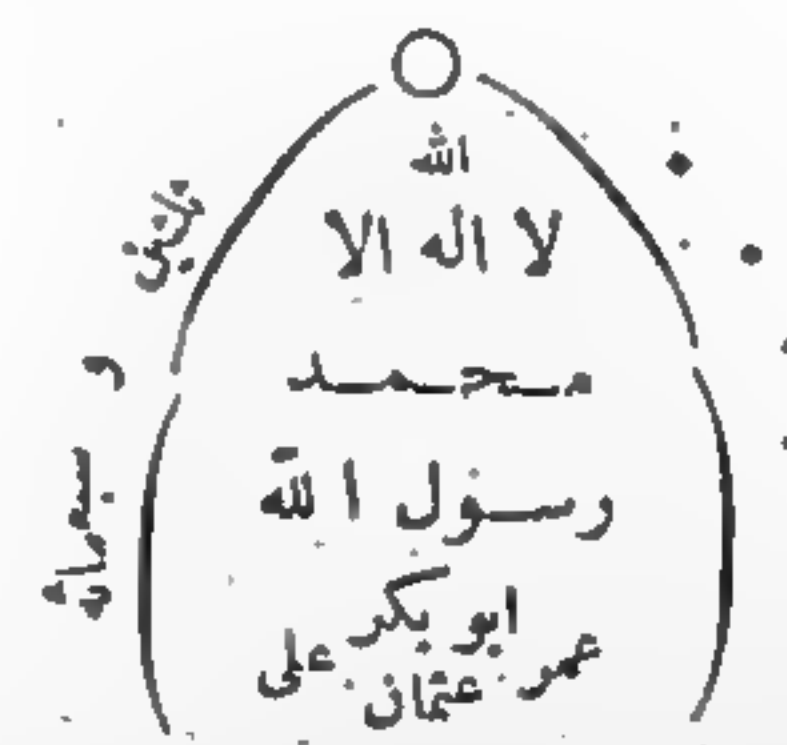 الله
لا اله الا
محمد
رسول الله
ابو بكر
عمر عثمان على
ثلثين
و
سبعمائة